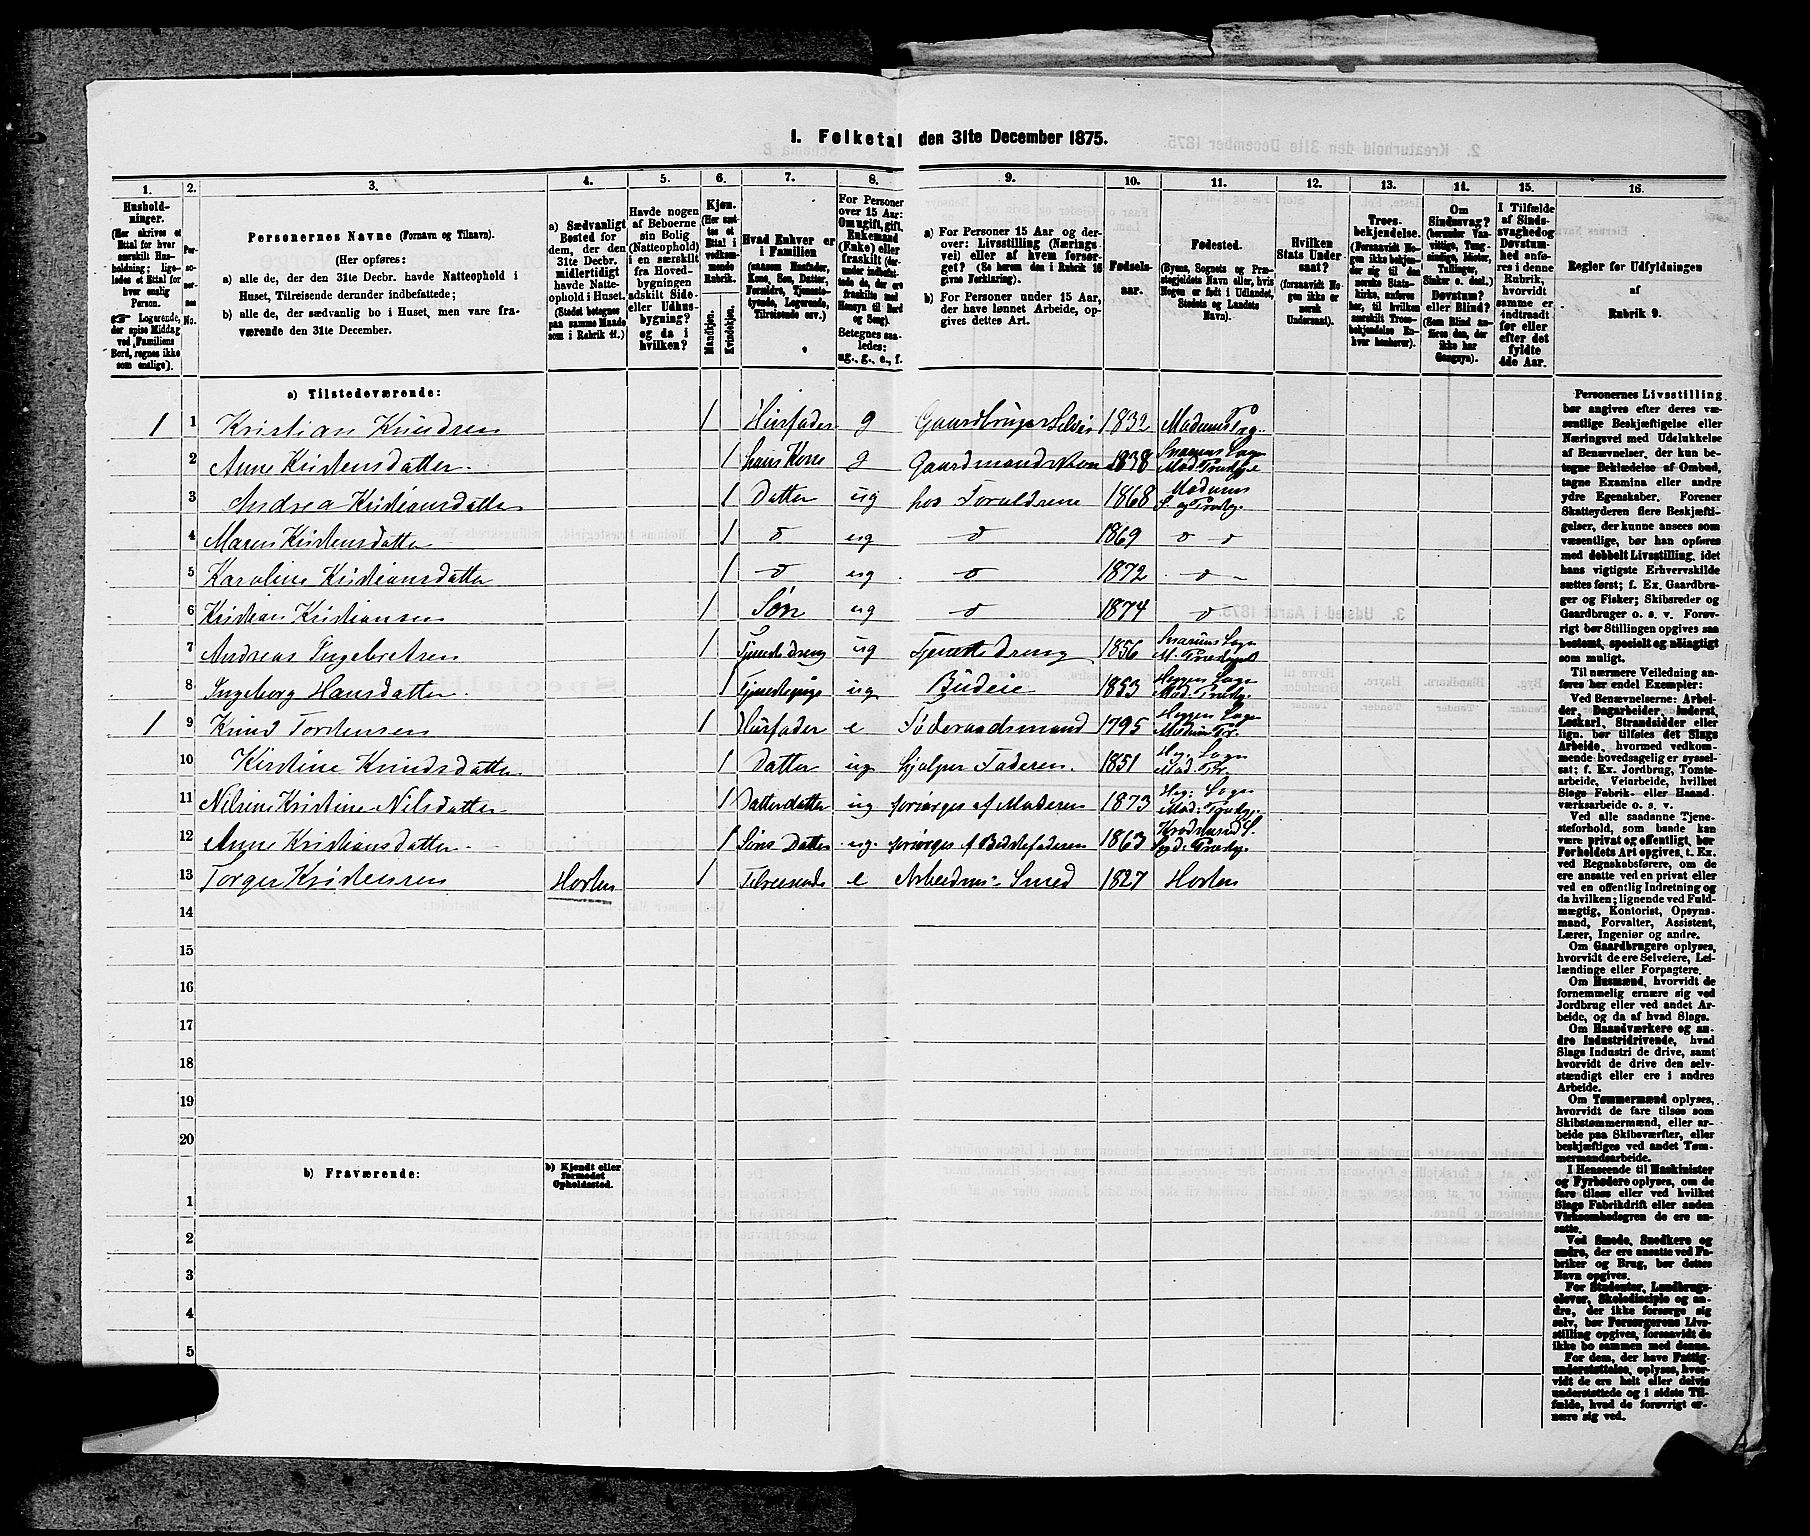 I. Folketal den 31te December 1875.
1. 2. 3. 4. 5. 6. 7. 8. 9. 10. 11. 12. 13. 14. 15. 16.
Hushold-
ninger.
(Her skrives et
Ettal for hver
særskilt Hus-
holdning; lige-
ledes et Ettal for
hver enslig
Person.
Logerende,
der spise Middag
ved Familiens
Bord, regnes ikke
som enslige).
Per-
so-
ner-
nes
No.
Personernes Navne (Fornavn og Tilnavn).
(Her opføres:
a) alle de, der den 31te Decbr. havde Natteophold i
Huset, Tilreisende derunder indbefattede;
b) alle de, der sædvanlig bo i Huset, men vare fra-
værende den 31te December.
a) Sædvanligt
Bosted for
dem, der den
31te Decbr.
midlertidigt
havde Natte-
ophold i Huset.
(Stedet betegnes
paa samme Maade
som i Rubrik 11.)
Havde nogen
af Beboerne
sin Bolig
(Natteophold)
i en særskilt
fra Hoved-
bygningen
adskilt Side-
eller Udhus-
bygning?
og da i
hvilken?
Kjøn.
(Her sæt-
tes et
Ettal i
vedkom-
mende
Rubrik.
Mandkjøn.
Kvindekjøn.
Hvad Enhver er
i Familien
(saasom Husfader,
Kone, Søn, Datter,
Forældre, Tjeneste-
tyende, Logerende,
Tilreisende osv.)
For Personer
over 15 Aar:
Om ugift, gift,
Enkemand
(Enke) eller
fraskilt (der-
under indbefat-
tede de, der ere
fraskilte med
Hensyn til Bord
og Seng).
Betegnes saa-
ledes:
ug., g., e., f.
a) For Personer 15 Aar og der-
over: Livsstilling (Nærings-
vei) eller af hvem forsør-
get? (Se herom den i Rubrik 16
givne Forklaring).
b) For Personer under 15 Aar,
der have lønnet Arbeide, op-
gives dettes Art.
Fødsels-
aar.
Fødested.
(Byens, Sognets og Præ-
stegjeldets Navn eller, hvis
Nogen er født i Udlandet,
Stedets og Landets
Navn).
Hvilken
Stats Under
saat?
(forsaavidt No-
gen ikke er
norsk
Undersaat).
Troes-
bekjendelse.
(Forsaavidt No-
gen ikke bekjen-
der sig til den
norske Stats-
kirke, anføres
her, til hvilken
særskilt Troes-
bekjendelse En-
hver henhører).
Om
Sindssvag?
(herunder Van-
vittige, Tung-
sindige, Idioter,
Tullinger,
Sinker o. desl.)
Døvstum?
eller Blind?
(Som Blind an-
føres den, der
ikke har
Gangsyn).
I Tilfælde
af Sinds-
svaghed og
Døvstum-
hed anfø-
res i denne
Rubrik,
hvorvidt
samme er
indtraadt
før eller
efter det
fyldte
4de Aar.
Regler for Udfyldningen
af
Rubrik 9.
a) Tilstedeværende:
1 1 Kristian Knudsen 1 Husfader g Gaardbruger Selvei 1832 Modums Præg.
2 Anne Kristensdatter 1 hans Kone g Gaardmandskon 1838 Snarums Sogn Mod. Prædgje
3 Andrea Kristiansdatter 1 Datter ug hos Foraldrene 1868 Modums S. og Prædg.
4 Maren Kristensdatter 1 d ug d 1869 d d
5 Karoline Kristiansdatter 1 d ug d 1872 d
6 Kristian Kristiansen 1 Søn ug d 1874 d
7 Andreas Ingebretsen 1 Tjenestedreng ug Tjenestedreng 1856 Snarums Sogn
8 Ingeborg Hansdatter 1 ug Budeie 1853 Heggen Sogn Mod. Prædg.
1 9 Knud Torstensen 1 Husfader e Føderaadsmand 1795 Heggen Sogn Modum Pr.
10 Kirstine Knudsdatter 1 Datter ug hjelper Faderen 1851 Heg. Sogn Mod. Pr.
11 Nilsine Kristine Nilsdatter 1 Datterdatter ug forsørges af Moderen 1873 Heg: Sogn Mod: Prædg.
12 Anne Kristiansdatter 1 Søns Datter ug forsørges af Bedstefaderen 1863 Krødsherred S.
13 Torger Kristensen Horten 1 Tilreisende e Arbeidsm: Smed 1827 Horten
14
15
16
17
18
19
20
b) Fraværende:
b) Kjendt eller
formodet
Opholdssted.
1
2
3
4
5
Personernes Livsstilling
bør angives efter deres væ-
sentlige Beskjæftigelse eller
Næringsvei med Udelukkelse
af Benævnelser, der kun be-
tegne Beklædelse af Ombud,
tagne Examina eller andre
ydre Egenskaber. Forener
Skatteyderen flere Beskjæfti-
gelser, der kunne ansees som
væsentlige, bør han opføres
med dobbelt Livsstilling, idet
hans vigtigste Erhvervskilde
sættes først; f. Ex. Gaardbru-
ger og Fisker; Skibsreder og
Gaardbruger o. s. v. Forøv-
rigt bør Stillingen opgives saa
bestemt, specielt og nøiagtigt
som muligt.
Til nærmere Veiledning an-
føres her endel Exempler:
Ved Benævnelserne: Arbei-
der, Dagarbeider, Inderst,
Løskarl, Strandsidder eller
lign. bør tilføies det Slags
Arbeide, hvormed vedkom-
mende hovedsagelig er syssel-
sat; f. Ex. Jordbrug, Tomte-
arbeide, Veiarbeide, hvilket
Slags Fabrik- eller Haand-
værksarbeide o. s. v.
Ved alle saadanne Tjene-
steforhold, som baade kan
være privat og offentligt, bør
Forholdets Art opgives, t. Ex.
ved Regnskabsførere, om de
ere ansatte ved en privat eller
ved en offentlig Indretning og
da hvilken; lignende ved Fuld-
mægtig, Kontorist, Opsyns-
mand, Forvalter, Assistent,
Lærer, Ingeniør og andre.
Om Gaardbrugere oplyses,
hvorvidt de ere Selveiere, Lei-
lændinge eller Forpagtere.
Om Husmænd, hvorvidt de
fornemmelig ernære sig ved
Jordbrug eller ved andet Ar-
beide, og da af hvad Slags.
Om Haandværkere og an-
dre Industridrivende, hvad
Slags Industri de drive, samt
hvorvidt de drive den selv-
stændigt eller ere i andres
Arbeide.
Om Tømmermænd oplyses,
hvorvidt de fare tilsøs som
Skibstømmermænd, eller ar-
beide paa Skibsværfter, eller
beskjæftiges ved andet Tøm-
mermandsarbeide.
I Henseende til Maskinister
og Fyrbødere oplyses, om de
fare tilsøs eller ved hvilket
Slags Fabrikdrift eller anden
Virksomhedsgren de ere an-
satte.
Ved Smede, Snedkere og
andre, der ere ansatte ved Fa-
briker og Brug, bør dettes
Navn opgives.
For Studenter, Landbrugs-
elever, Skoledisciple og an-
dre, der ikke forsørge sig
selv, bør Forsørgerens Livs-
stilling opgives, forsaavidt de
ikke bo sammen med denne.
For dem, der have Fattig-
understøttelse, oplyses, hvor-
vidt de ere helt eller delvis
understøttede og i sidste Til-
fælde, hvad de forøvrigt er-
nære sig ved.